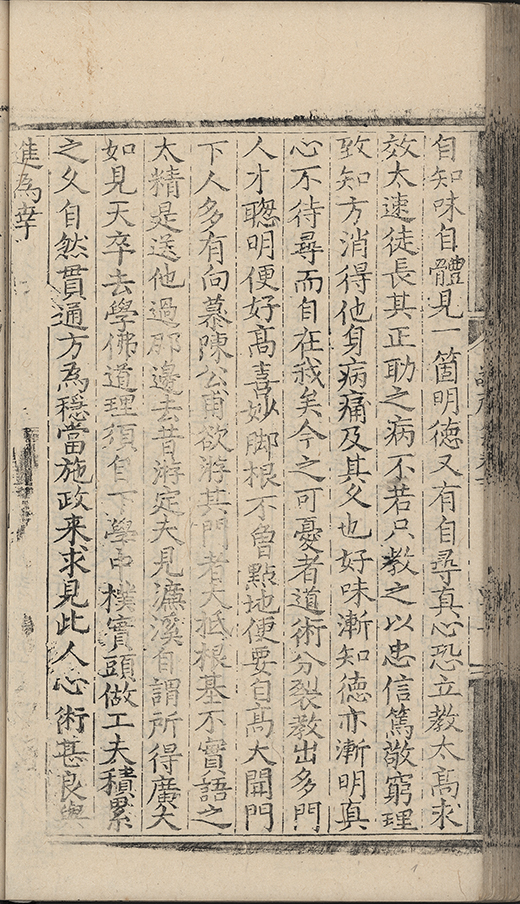 自知味自體見一箇明徳又有自尋真心恐立教太高求
效太速徒長其正助之病不若只教之以忠信篤敬窮理
致知方消得他身病痛及其久也好味漸知德亦漸明真
心不待尋而自在我矣今之可憂者道術分裂教出多門
人才聦明便好高喜妙脚根不曾點地便要自高大開門
下人多有向慕陳公甫欲游其門者大抵根基不實語之
太精是送他過那邊去昔游定夫見濂溪自謂所得廣大
如見天卒去學佛道理須自下學中樸實頭做工夫積累
之久自然貫通方為穩當施政来求見此人心術甚良與
進為幸